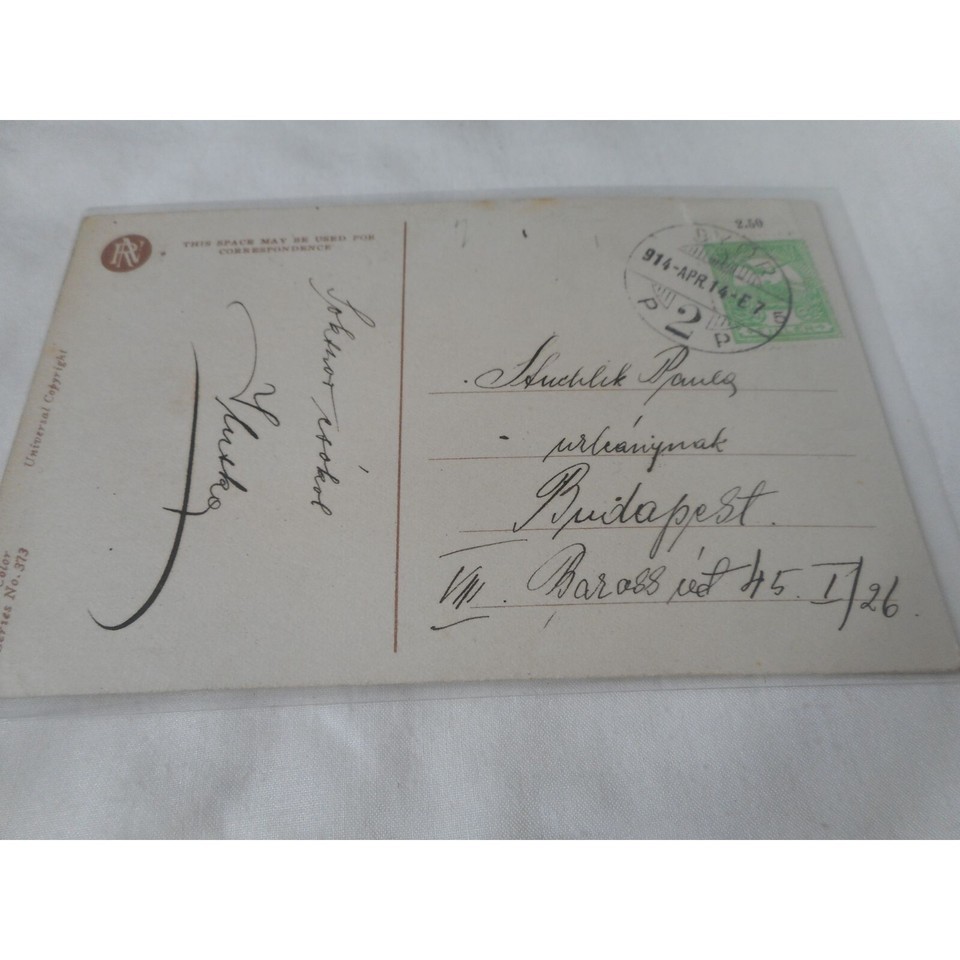 THIS SPACE MAY BE USED FOR
CORRESPONDENCE
Universal Copyright
Color
Series No. 373
Sokszor csókol
2.50
GYŐR
914-APR.14-E7
P 2 P
5
Stuchlik Paula
urleánynak
Budapest.
VIII. Baross út 45. I/26.